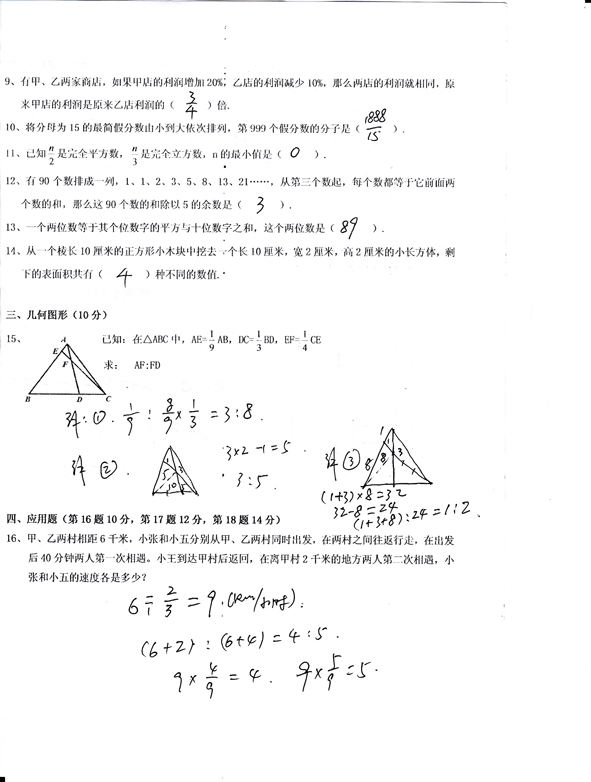 9、有甲、乙两家商店，如果甲店的利润增加20%，乙店的利润减少10%，那么两店的利润就相同，原
来甲店的利润是原来乙店利润的（ 3/4 ）倍.
10、将分母为15的最简假分数由小到大依次排列，第999个假分数的分子是（ 1888/15 ）.
11、已知n/2是完全平方数，n/3是完全立方数，n的最小值是（ 0 ）.
12、有90个数排成一列，1、1、2、3、5、8、13、21……，从第三个数起，每个数都等于它前面两
个数的和，那么这90个数的和除以5的余数是（ 3 ）.
13、一个两位数等于其个位数字的平方与十位数字之和，这个两位数是（ 89 ）.
14、从一个棱长10厘米的正方形小木块中挖去一个长10厘米，宽2厘米，高2厘米的小长方体，剩
下的表面积共有（ 4 ）种不同的数值.
三、几何图形（10分）
15、 已知：在△ABC中，AE=1/9AB，DC=1/3BD，EF=1/4CE
求： AF:FD
A
E
F
B D C
解：①. 1/9 : 8/9×1/3 = 3:8.
解②.
1
5 3
10 5
3×2-1=5.
3:5.
解③
1
1
8 8 3
(1+3)×8=32
32-8=24
(1+3+8):24=1:2.
四、应用题（第16题10分，第17题12分，第18题14分）
16、甲、乙两村相距6千米，小张和小五分别从甲、乙两村同时出发，在两村之间往返行走，在出发
后40分钟两人第一次相遇。小王到达甲村后返回，在离甲村2千米的地方两人第二次相遇，小
张和小五的速度各是多少？
6÷2/3=9.(km/小时).
(6+2):(6+4)=4:5.
9×4/9=4. 9×5/9=5.